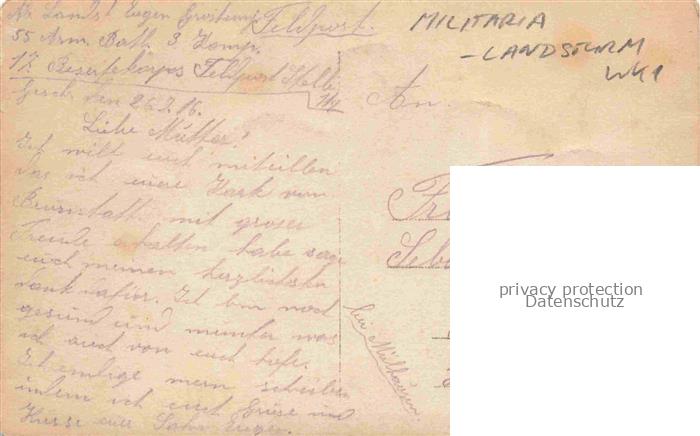 Ab. Landst. Eugen
Feldpost.
55 Arm. Batl. 3. Komp.
17 Reservekorps Feldpost Stelle
Gesch. den 26.2.16.
Liebe Mutter!
Ich will euch mitteillen
das ich euere Kart vom
mit groser
Freude erhalten habe sage
euch meinen herzlichsten
Dank dafür. Ich bin noch
gesund und munter was
ich auch von euch hofe.
Ich entlige mein schreiben
indem ich euch Grüse und
Küsse euer Sohn Eugen.
MILITARIA
-LANDSTURM
WK1
An
bei Mülhausen.
privacy protection
Datenschutz